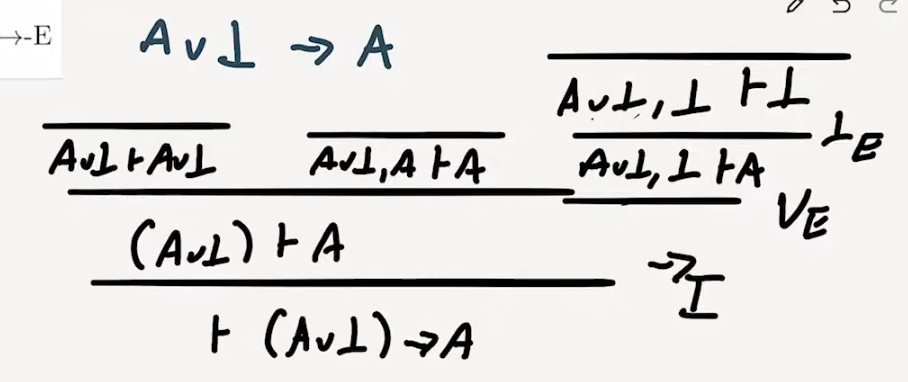 →-E
A∨⊥ → A
A∨⊥, ⊥ ⊢ ⊥
A∨⊥ ⊢ A∨⊥ A∨⊥, A ⊢ A A∨⊥, ⊥ ⊢ A ⊥E
(A∨⊥) ⊢ A ∨E
⊢ (A∨⊥) → A →I